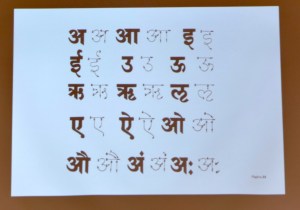 अ अ आ आ इ इ
ई ई उ उ ऊ ऊ
ऋ ऋ ऋ ऋ ऌ ऌ
ए ए ऐ ऐ ओ ओ
औ औ अं अं अः अः